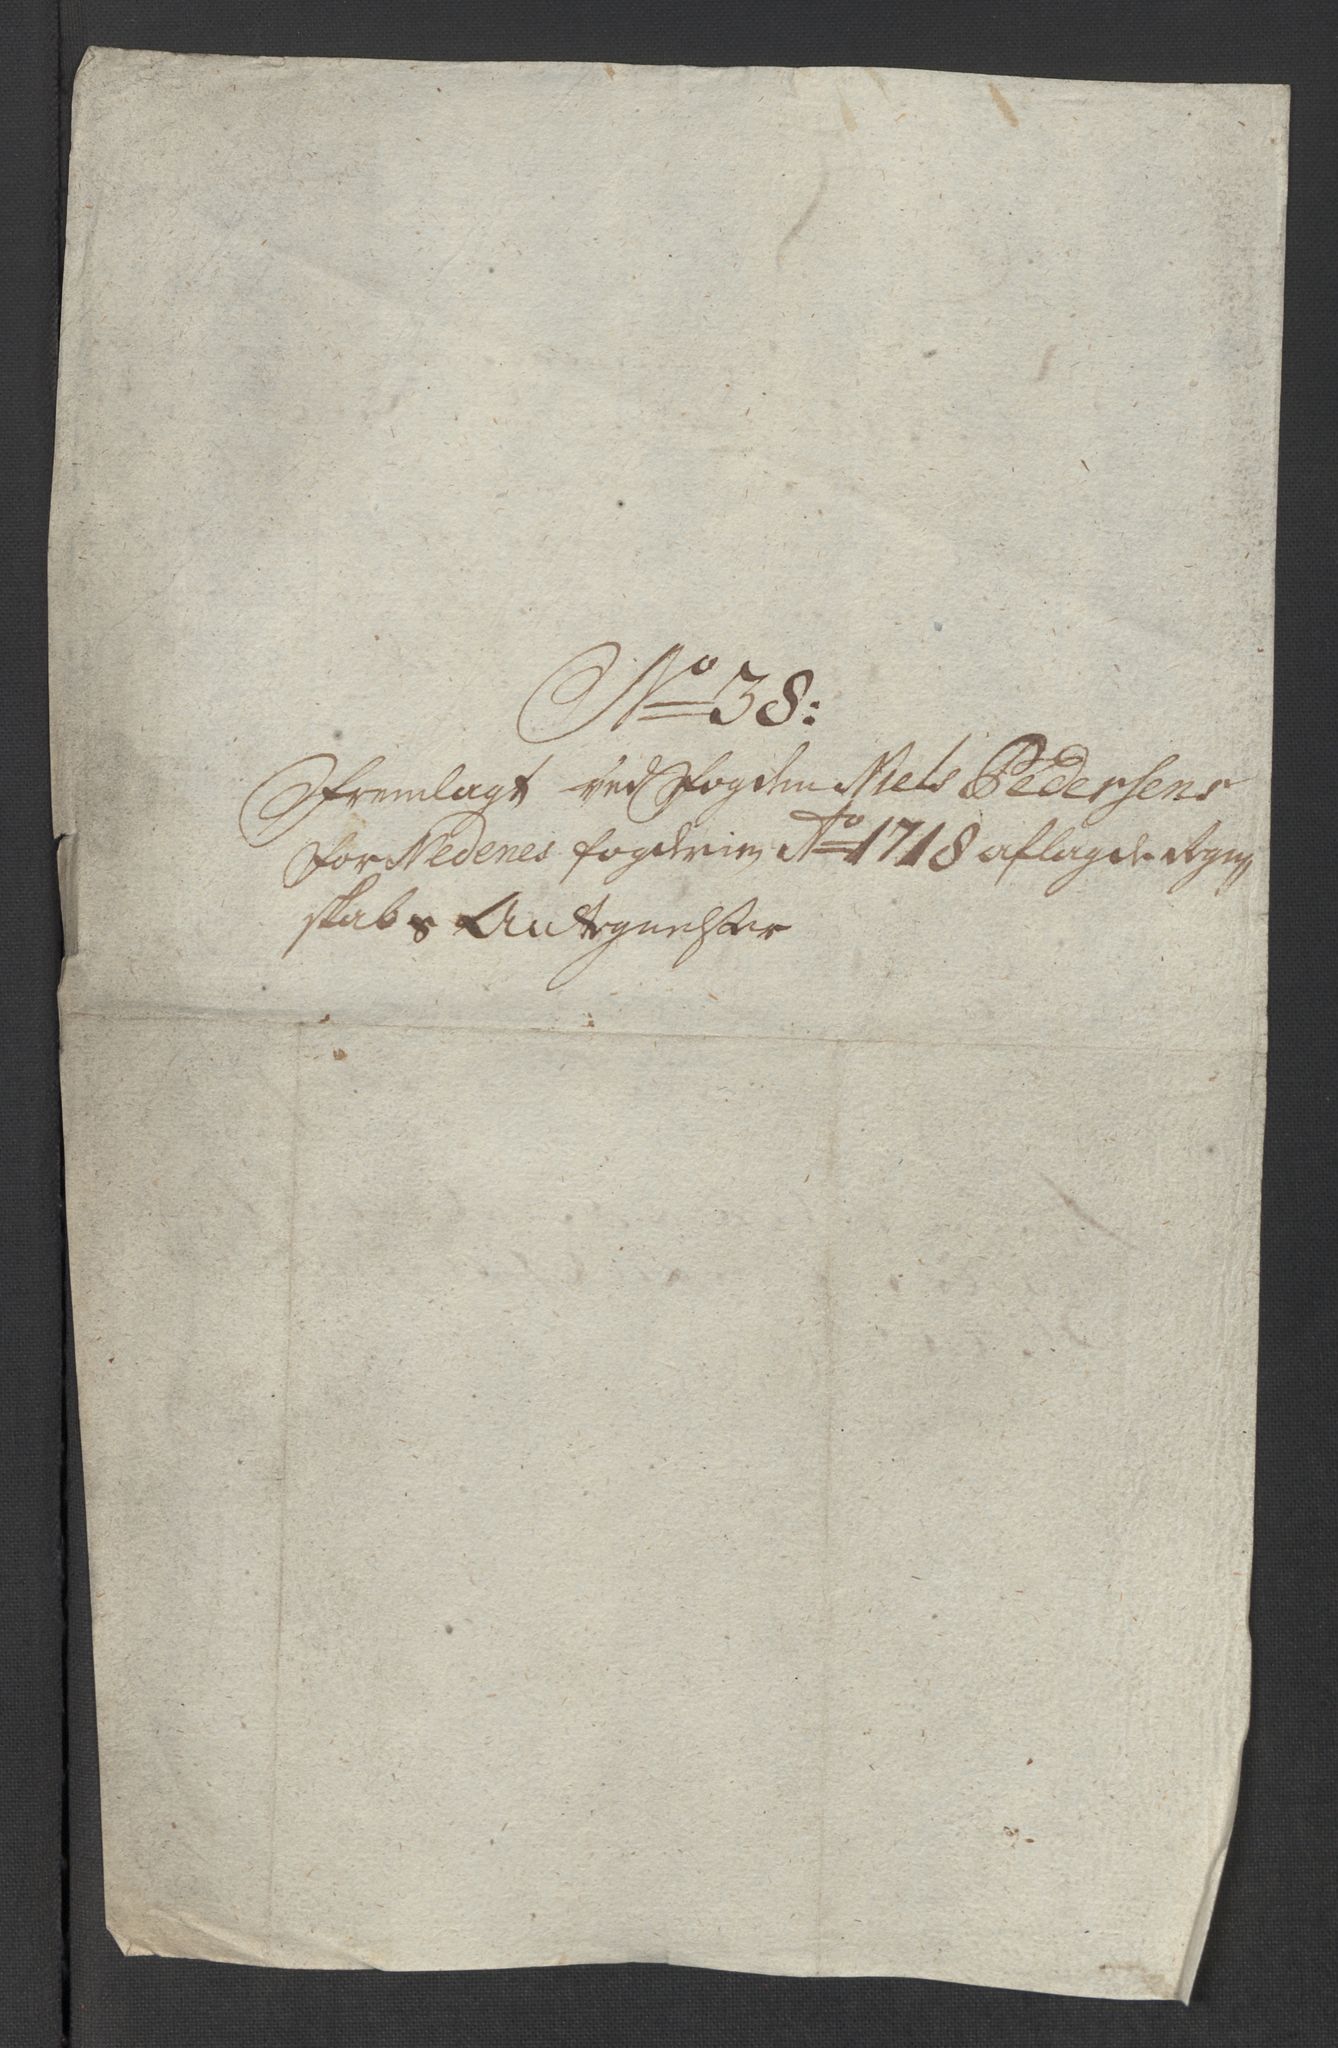 No 38:
Fremlagt ved Fogden Niels Pedersens
for Nedenes fogderie Ao 1718 aflagde Regen
skabs Antegnelser